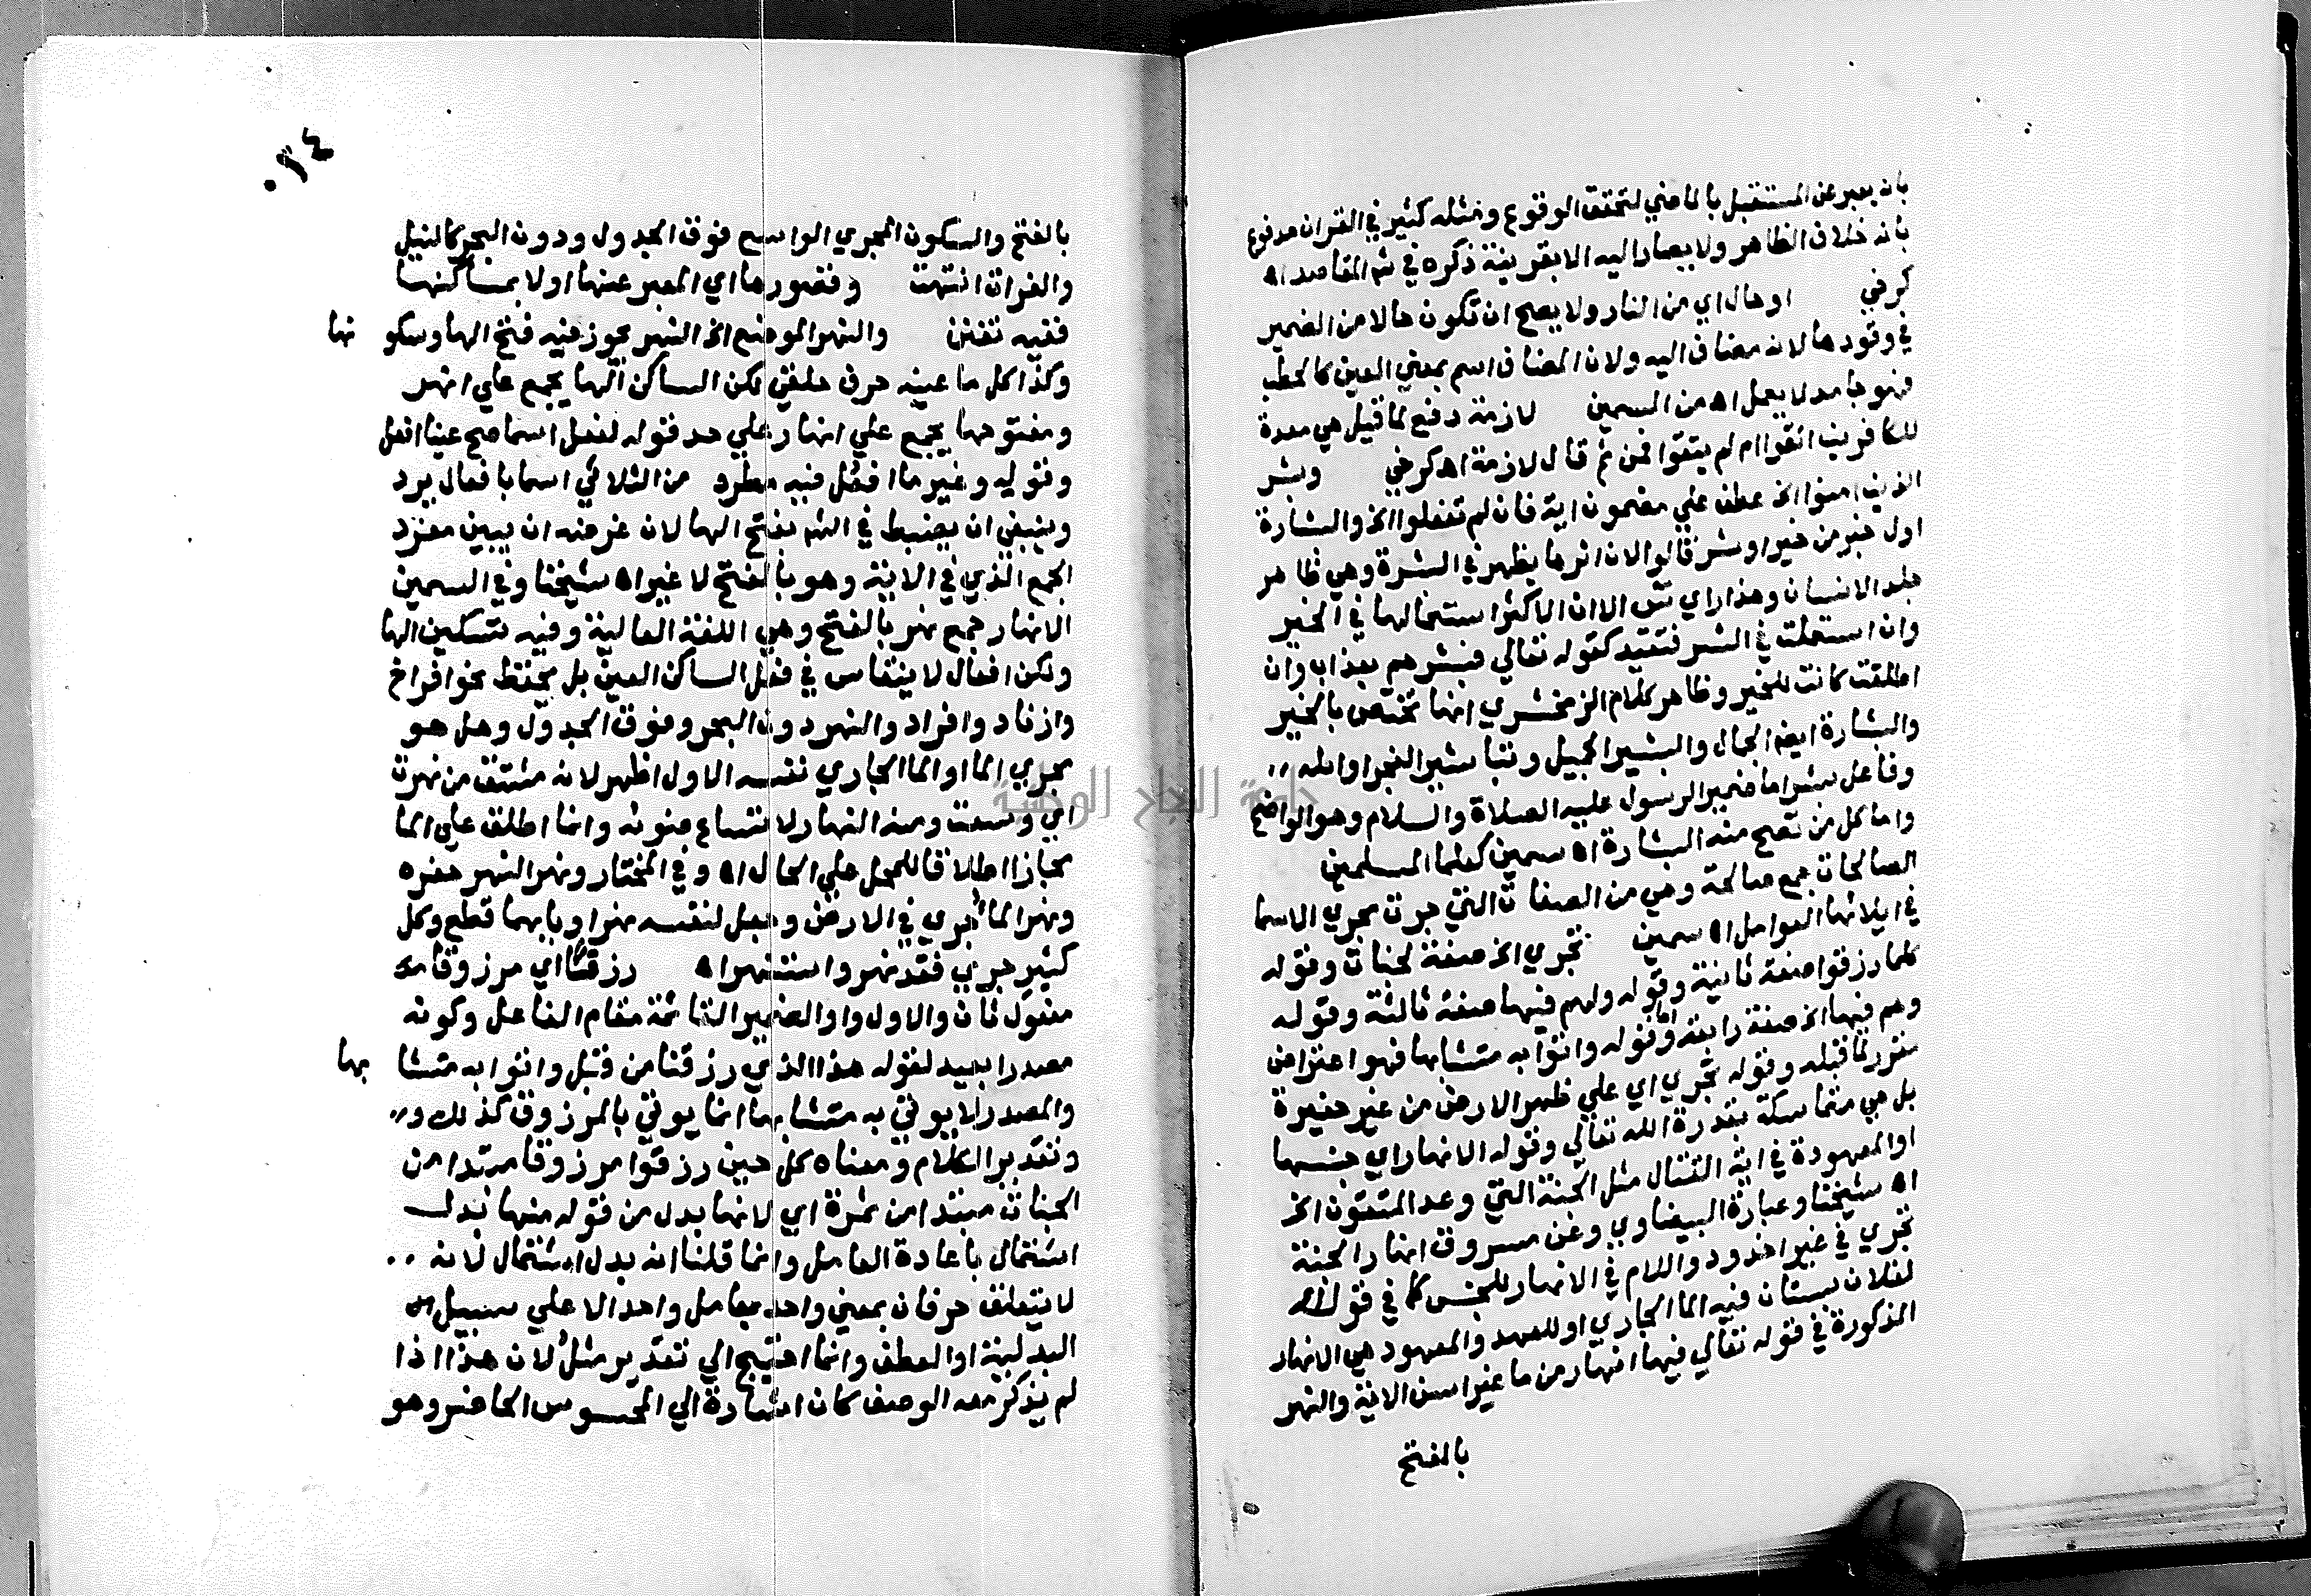 بانه يعبر عن المستقبل بالماضي لتحقق الوقوع ومثله كثير في القران مدفوع
بانه خلاف الظاهر ولا يصار اليه الا بقرينة ذكره في شم المقاصد اه
كرخي اوهال اي من النار ولا يصح ان تكون حالا من الضمير
في وقودها لانه مضاف اليه ولان المضاف اسم بمعني العين كالحطب
فهو جامد لا يعمل اه من السمين لازمة دفع لما قيل هي معدة
للكافرين اتقوا ام لم يتقوا فمن ثم قال لازمة اه كرخي وبشر
الذين امنوا الخ عطف علي مضمون اية فان لم تفعلوا الخ والبشارة
اول خبر من خير او شر قالوا لان اثرها يظهر في البشرة وهي ظاهر
جلد الانسان وهذا راي س الا ان الاكثر استعمالها في الخير
وان استعملت في الشر فتقيد كقوله تعالي فبشرهم بعذاب وان
اطلقت كانت للخير وظاهر كلام الزمخشري انها تختص بالخير
والبشارة ايضا الجمال والبشير الجميل وتباشير الفجر اوائله
وفاعل بشر اما ضمير الرسول عليه الصلاة والسلام وهو الواضح
واما كل من تصح منه البشارة اه سمين كعلما المسلمين
الصالحات جمع صالحة وهي من الصفات التي جرت مجري الاسما
في ايلائها العوامل اه سمين تجري الخ صفة لجنات وقوله
كلما رزقوا صفة ثانية وقوله ولهم فيها صفة ثالثة وقوله
وهم فيها الخ صفة رابعة واما قوله واتوا به متشابها فهو اعتراض
مقرر لما قبله وقوله تجري اي علي ظهر الارض من غير حفيرة
بل هي متماسكة بقدرة الله تعالي وقوله الانهار اي جنسها
او المعهودة في اية القتال مثل الجنة التي وعد المتقون الخ
اه شيخنا وعبارة البيضاوي وعن مسروق انهار الجنة
تجري في غير اخدود واللام في الانهار للجنس كما في قولك
لفلان بستان فيه الما الجاري او للعهد والمعهود هي الانهار
المذكورة في قوله تعالي فيها انهار من ما غير اسن الاية والنهر
بالفتح
٠٣٤
بالفتح والسكون المجري الواسع فوق الجدول ودون البحر كالنيل
والفرات انتهت وقصورها اي المعبر عنها اولا بمساكنها
ففيه تفنن والنهر الموضع الخ النهر يجوز فيه فتح الها وسكو نها
وكذا كل ما عينه حرف حلقي لكن الساكن الها يجمع علي انهر
ومفتوحها يجمع علي انهار علي حد قوله لفعل اسما صح عينا افعل
وقوله وغير ما افعل فيه مطرد من الثلاثي اسما بافعال يرد
وينبغي ان يضبط في الشم بفتح الها لان غرضه ان يبين مفرد
الجمع الذي في الاية وهو بالفتح لا غير اه شيخنا وفي السمين
الانهار جمع نهر بالفتح وهي اللغة العالية وفيه تسكين الها
ولكن افعال لا ينقاس في فعل الساكن العين بل يحفظ نحو افراخ
وازناد وافراد والنهر دون البحر وفوق الجدول وهل هو
مجري الما او الما الجاري نفسه الاول اظهر لانه مشتق من نهرت
اي وسعت ومنه النهار لاتساع ضوئه وانما اطلق علي الما
مجازا اطلاقا للمحل علي الحال اه وفي المختار ونهر النهر حفره
ونهر الما جري في الارض وجعل لنفسه نهرا وبابهما قطع وكل
كثير جري فقد نهر واستنهر اه رزقا اي مرزوقا
مفعول ثان والاول واو الضمير القائمة مقام الفاعل وكونه
مصدرا بعيد لقوله هذا الذي رزقنا من قبل واتوا به متشا بها
والمصدر لا يوتي به متشابها انما يوتي بالمرزوق كذلك و
وتقدير الكلام ومعناه كل حين رزقوا مرزوقا مبتدا من
الجنات مبتدا من ثمرة اي لانها بدل من قوله منها بدل
اشتمال باعادة العامل وانما قلنا انه بدل اشتمال لانه
لا يتعلق حرفان بمعني واحد بعامل واحد الا علي سبيل
البدلية او العطف وانما احتيج الي تقدير مثل لان هذا اذا
لم يذكر معه الوصف كان اشارة الي المحسوس الحاضر وهو